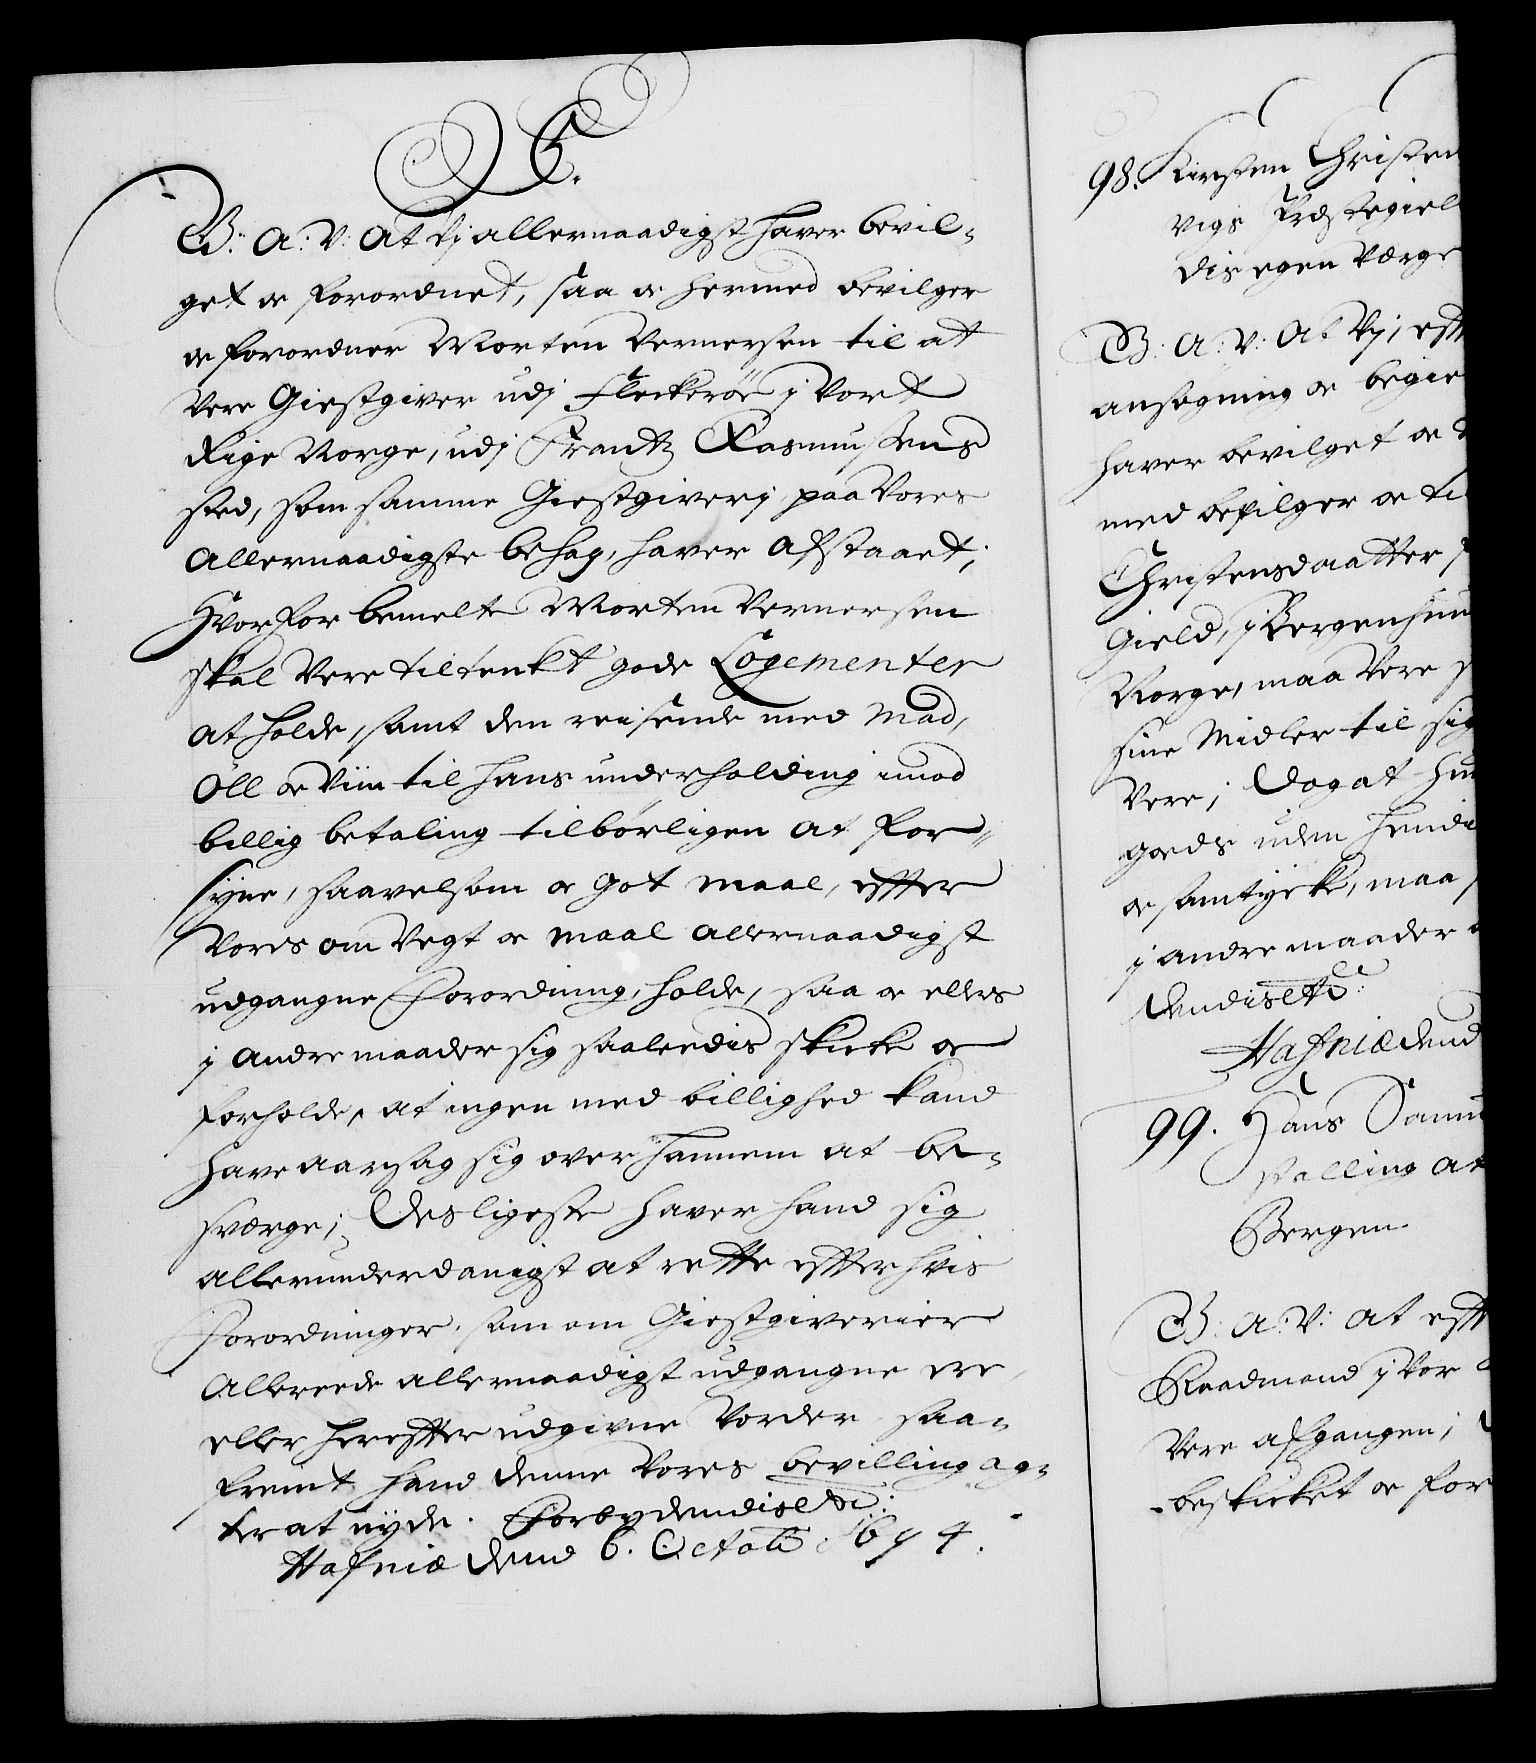 C5.
G: A: V: At Vi allernaadigst haver bevil-
get oc forordnet, saa oc hermed bevilger
oc forordner Morten Vernersen til at
vere Giestgiver udj Fleckerøe j vort
Rige Norge, udj Frantz Rasmussens
sted, som samme Giestgiverj paa Vores
allernaadigste behag, haver afstaaet;
Hvorfor bemelte Morten Vernersen
skal vere tiltenkt gode Logementer
at holde, samt den reisende med Mad,
Öll oc Viin til hans underholding imod
billig betaling tilbörligen at for-
syne, saavelsom oc got maal, effter
Vores om Vegt oc maal allernaadigst
udgangne Forordning, holde, saa oc ellers
j andre maader sig saaledis skicke oc
forholde, at ingen med billighed kand
have aarsag sig over hannem at be-
sværge; Desligeste haver hand sig
allerunderdanigst at rette effter hvis
Forordninger, som om Giestgiverier
allereede allernaadigst udgangne ere,
eller hereffter udgivne vorder saa-
fremt hand denne Vores bevilling ag-
ter at nyde. Forbydendis etc:
Hafniæ dend 6. Octob 1694.
98. Kirsten Christen
vigs Præstegiel
dis egen Værge
G: A: V: At Vj, eff
ansøgning oc begie
haver bevilget oc
med bevilger oc ti
Christensdaatter
Gield, j Bergenhuu
Norge, maa vere s
sine Midler til sig
vere; Dog at hu
goeds uden hendis
oc samtycke, maa
j andre maader
dendis etc:
Hafniæ dend
99. Hans Samu
stelling at
Bergen
G: A: V: at eff
Raadmand j vor
vere afgangen,
beskicket oc for